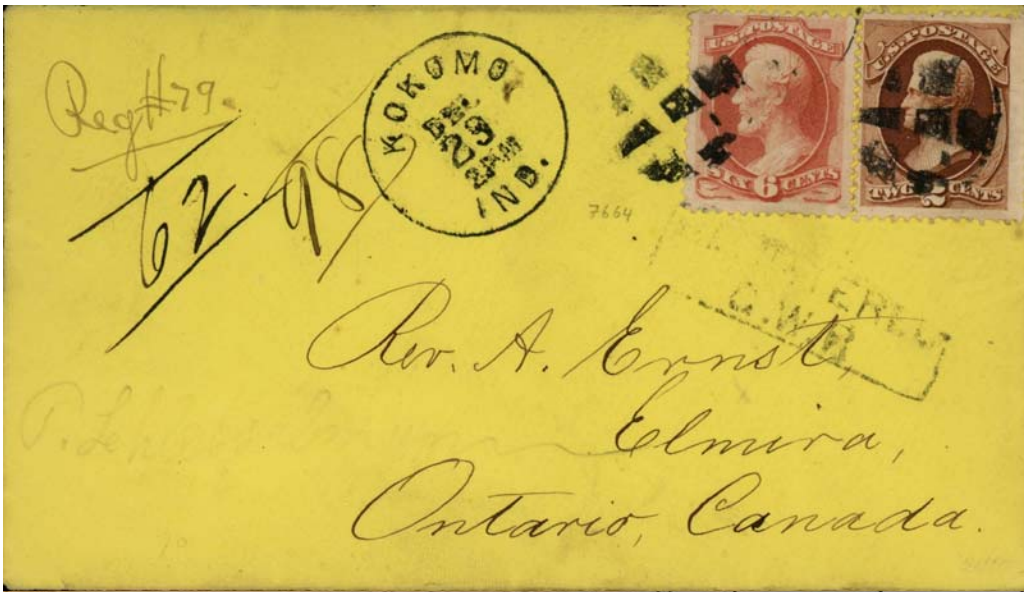 Reg # 79.
62
98
KOKOMO
29
IND.
U.S. POSTAGE
SIX 6 CENTS
U.S. POSTAGE
TWO 2 CENTS
7664
G.W.R
Rev. A. Ernst,
Elmira,
Ontario, Canada.